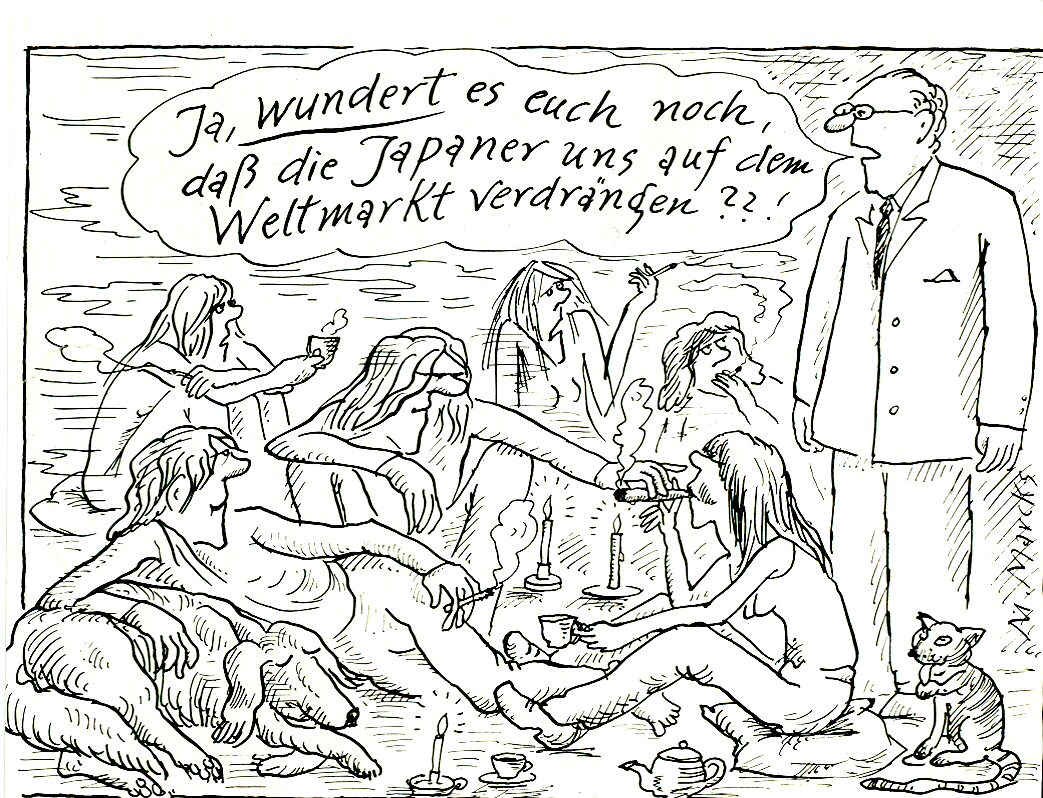 Ja, wundert es euch noch,
daß die Japaner uns auf dem
Weltmarkt verdrängen ??!
M. Marcks